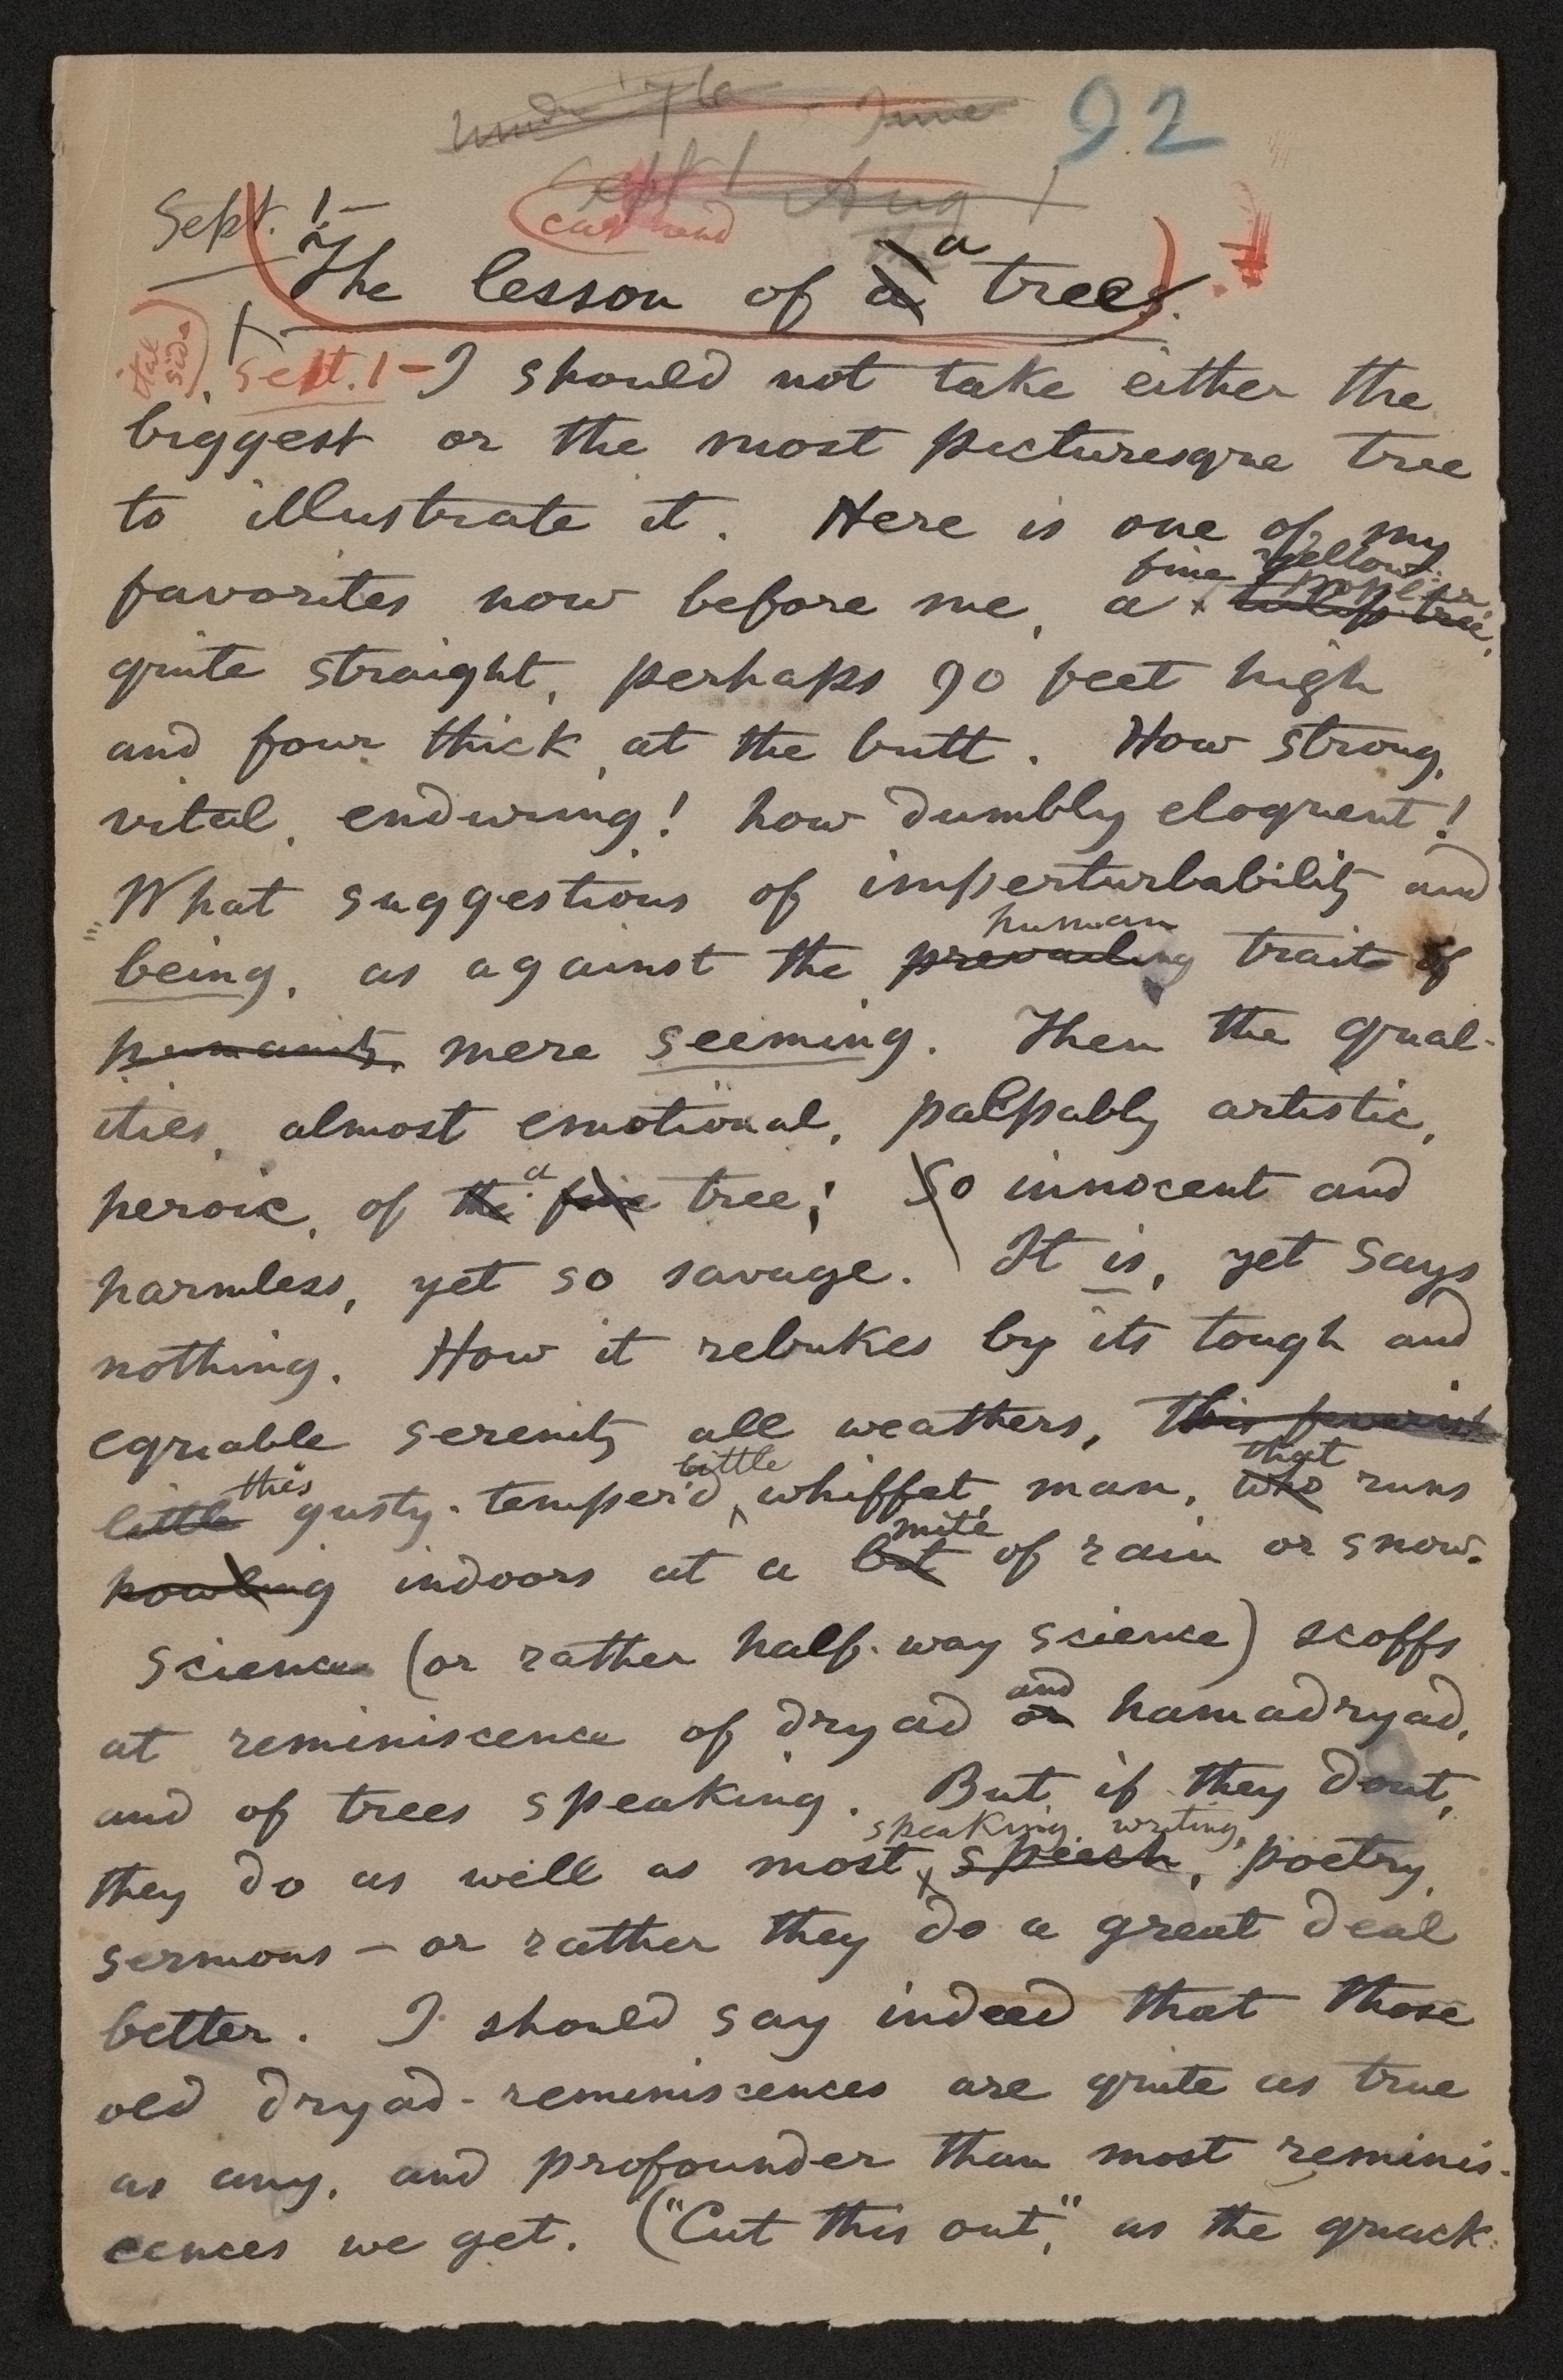 June 92
Sept 1 Aug
Sept. 1 —
cap head
The lesson of a a tree.
ital side
Sept. 1 — I should not take either the
biggest or the most picturesque tree
to illustrate it. Here is one of my
fine yellow poplar
favorites now before me, a tulip tree,
quite straight, perhaps 90 feet high
and four thick, at the butt. How strong,
vital, enduring! how dumbly eloquent!
What suggestions of imperturbability and
human
being, as against the prevailing trait of
humanity mere seeming. Then the qual-
ities, almost emotional, palpably artistic,
a
heroic, of the fine tree; so innocent and
harmless, yet so savage. It is, yet says
nothing. How it rebukes by its tough and
equable serenity all weathers, this feverish
this little that
little gusty-temper'd whiffet, man, who runs
mite
howling indoors at a bit of rain or snow.
Science (or rather half-way science) scoffs
and
at reminiscence of dryad or hamadryad,
and of trees speaking. But if they dont,
speaking, writing,
they do as well as most speech, poetry,
sermons — or rather they do a great deal
better. I should say indeed that those
old dryad-reminiscences are quite as true
as any, and profounder than most reminis-
cences we get. ("Cut this out," as the quack